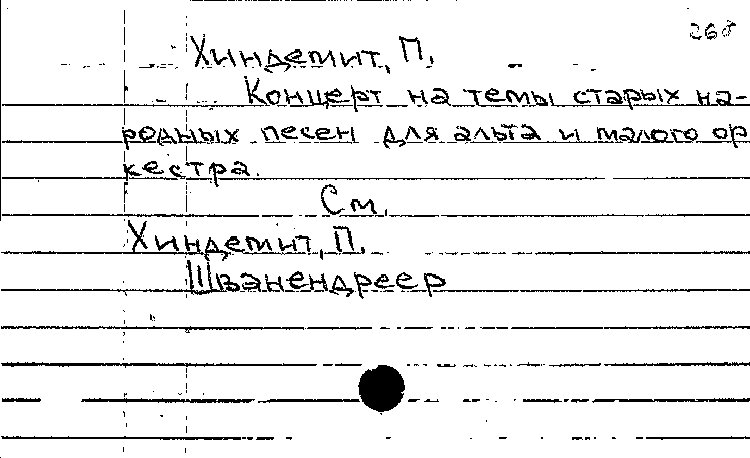 268
Хиндемит, П.
Концерт на темы старых на-
родных песен для альта и малого ор
кестра.
См.
Хиндемит, П.
Шванендреер